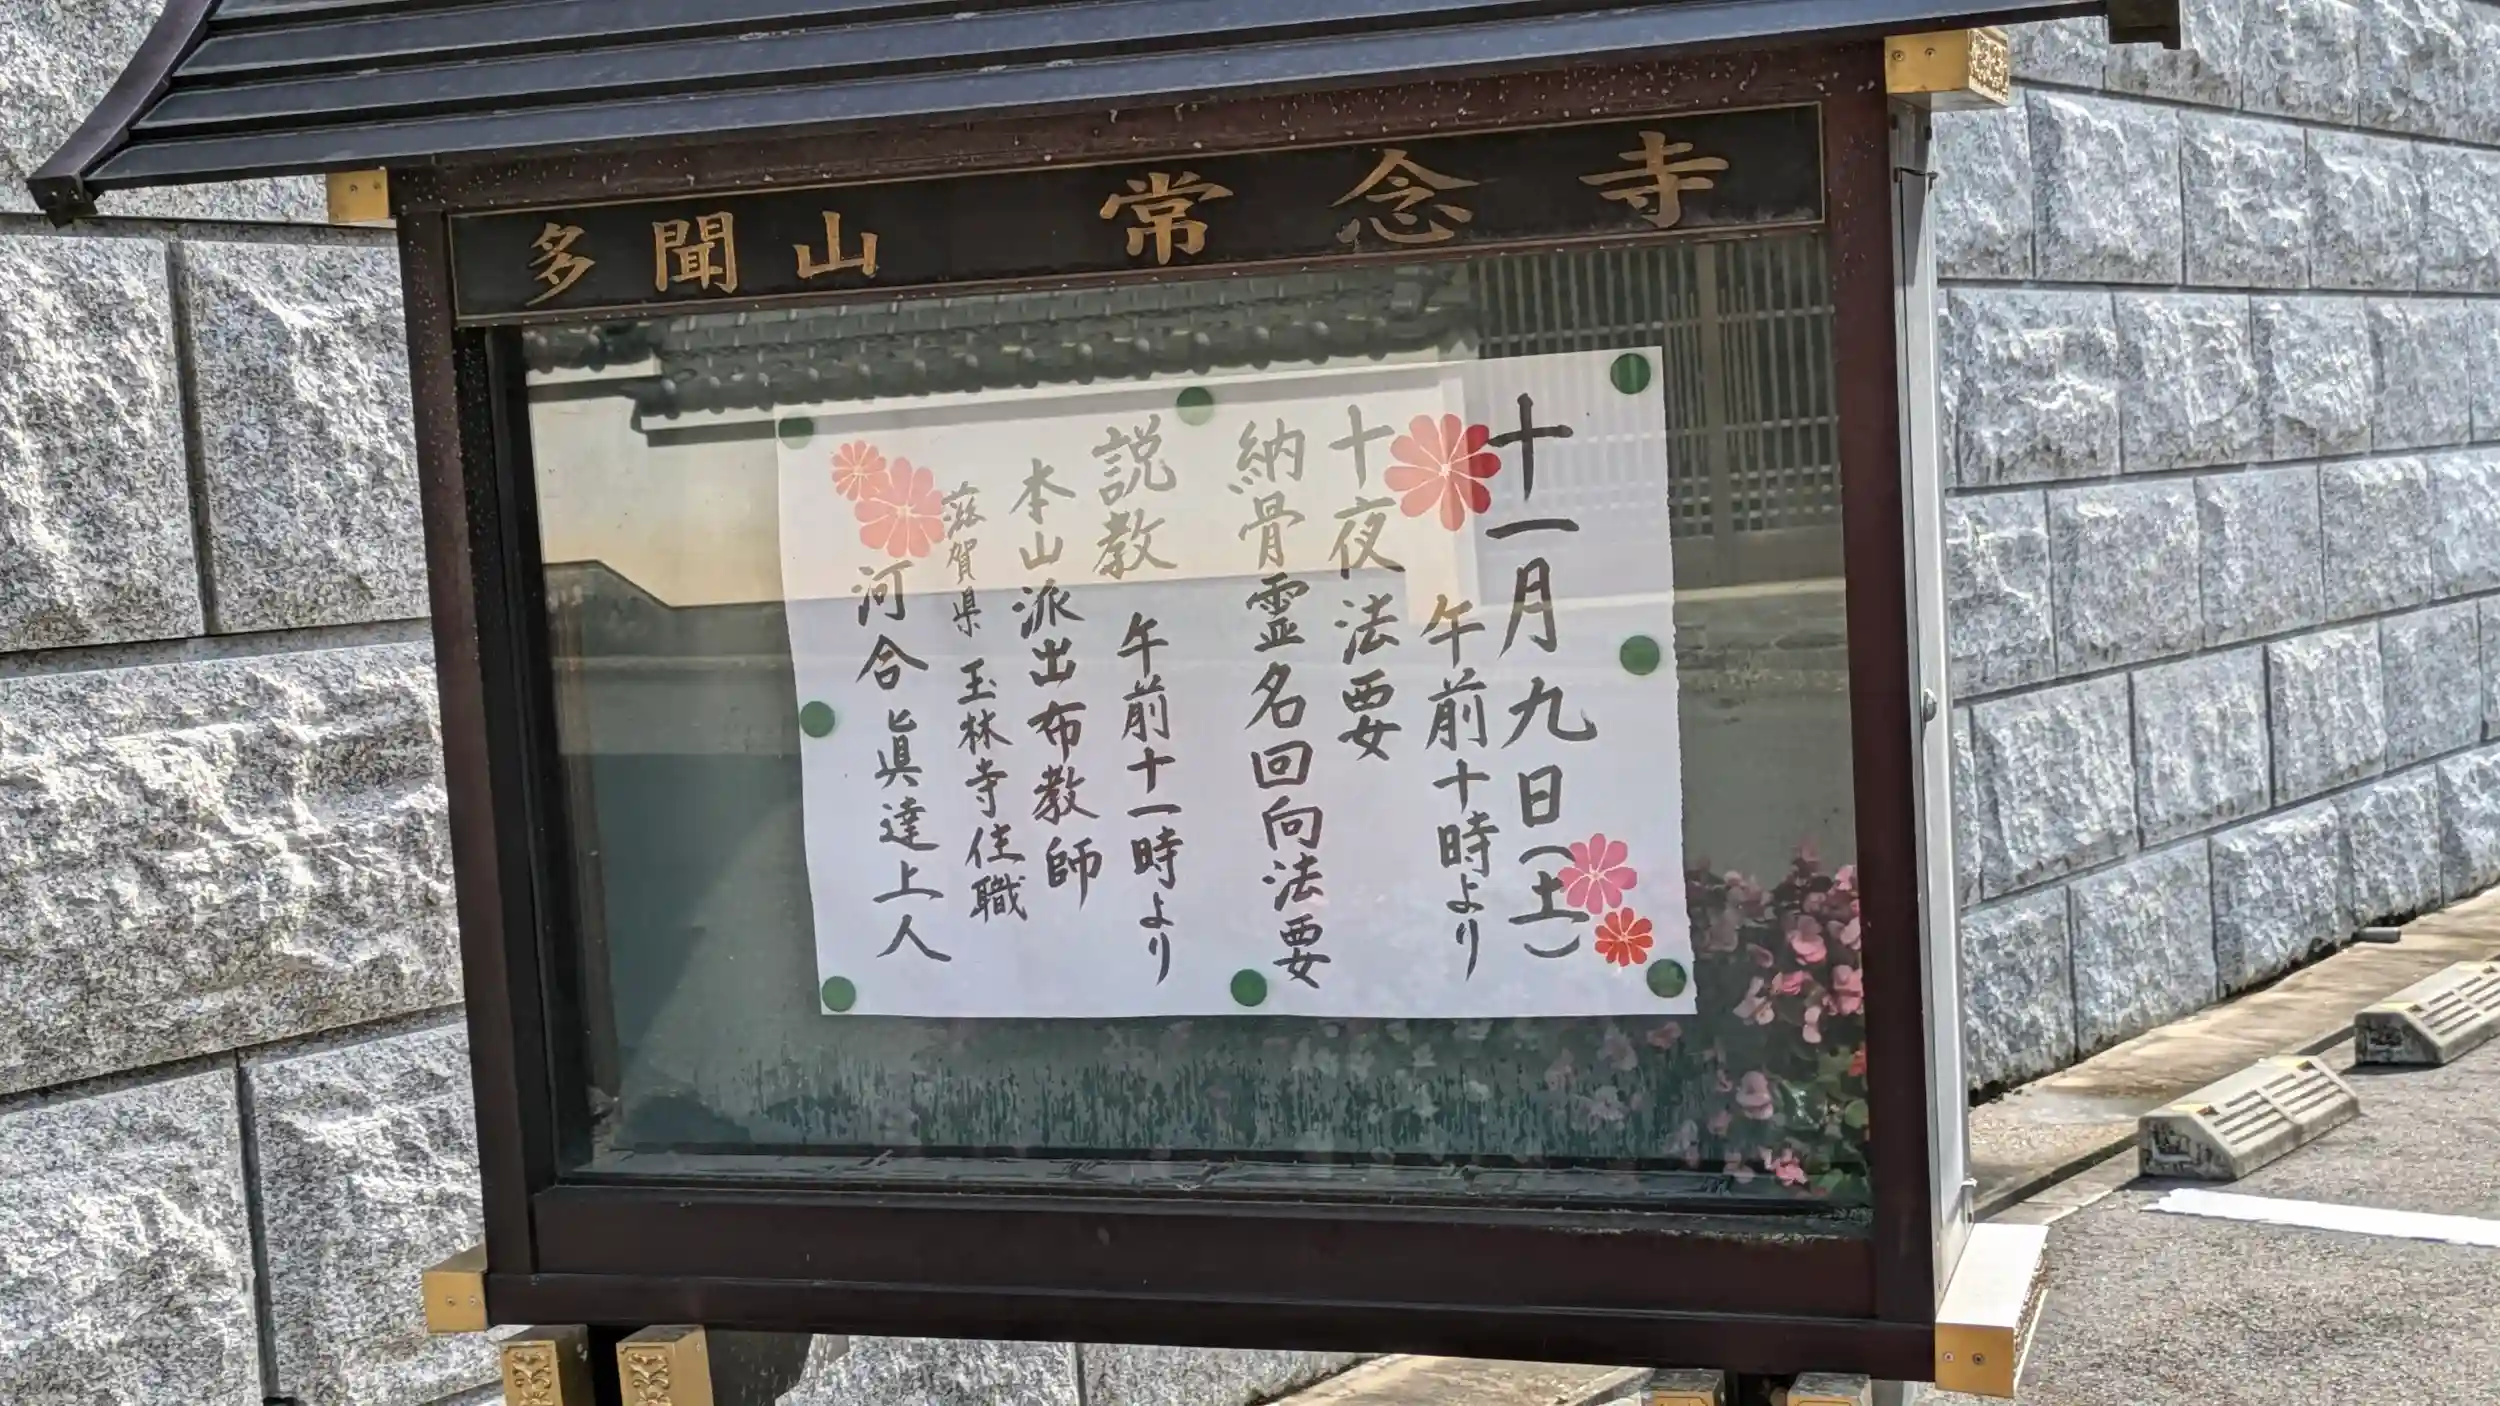 多聞山 常念寺
十一月九日(土)
午前十時より
十夜法要
納骨霊名回向法要
説教 午前十一時より
本山派出布教師
滋賀県 玉林寺住職
河合眞達上人